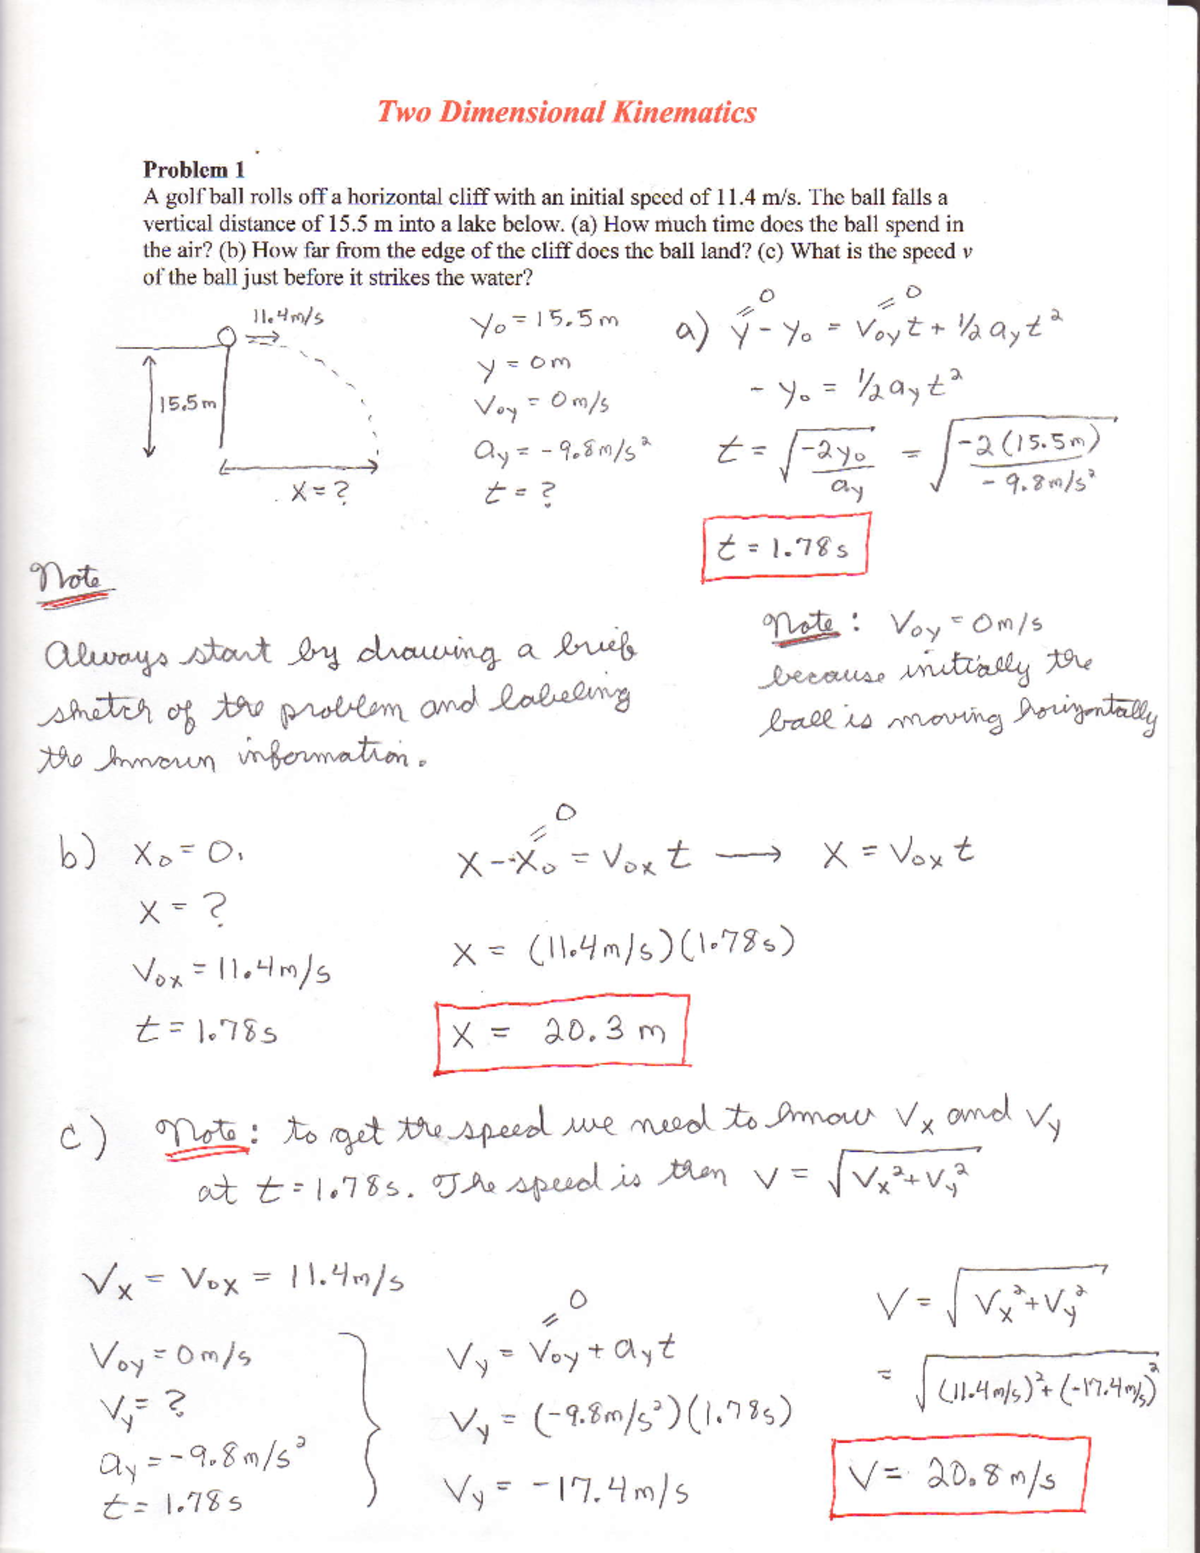 Two Dimensional Kinematics
Problem 1
A golf ball rolls off a horizontal cliff with an initial speed of 11.4 m/s. The ball falls a
vertical distance of 15.5 m into a lake below. (a) How much time does the ball spend in
the air? (b) How far from the edge of the cliff does the ball land? (c) What is the speed v
of the ball just before it strikes the water?
11.4m/s
15.5m
X = ?
y₀ = 15.5m
y = 0m
V₀y = 0m/s
ay = -9.8m/s²
t = ?
a) y - y₀ = V₀yt + ½ayt²
0 0
- y₀ = ½ayt²
t = √(-2y₀/ay) = √(-2(15.5m)/-9.8m/s²)
t = 1.78s
Note
Always start by drawing a brief
sketch of the problem and labeling
the known information.
Note: V₀y = 0m/s
because initially the
ball is moving horizontally
b) X₀ = 0.
X = ?
V₀x = 11.4m/s
t = 1.78s
0
X - X₀ = V₀x t → X = V₀x t
X = (11.4m/s)(1.78s)
X = 20.3 m
c) Note: to get the speed we need to know Vx and Vy
at t = 1.78s. The speed is then v = √(Vx²+Vy²)
Vx = V₀x = 11.4m/s
V₀y = 0m/s
Vy = ?
ay = -9.8m/s²
t = 1.78s
0
Vy = V₀y + ayt
Vy = (-9.8m/s²)(1.78s)
Vy = -17.4m/s
V = √(Vx²+Vy²)
= √((11.4m/s)²+(-17.4m/s)²)
V = 20.8m/s